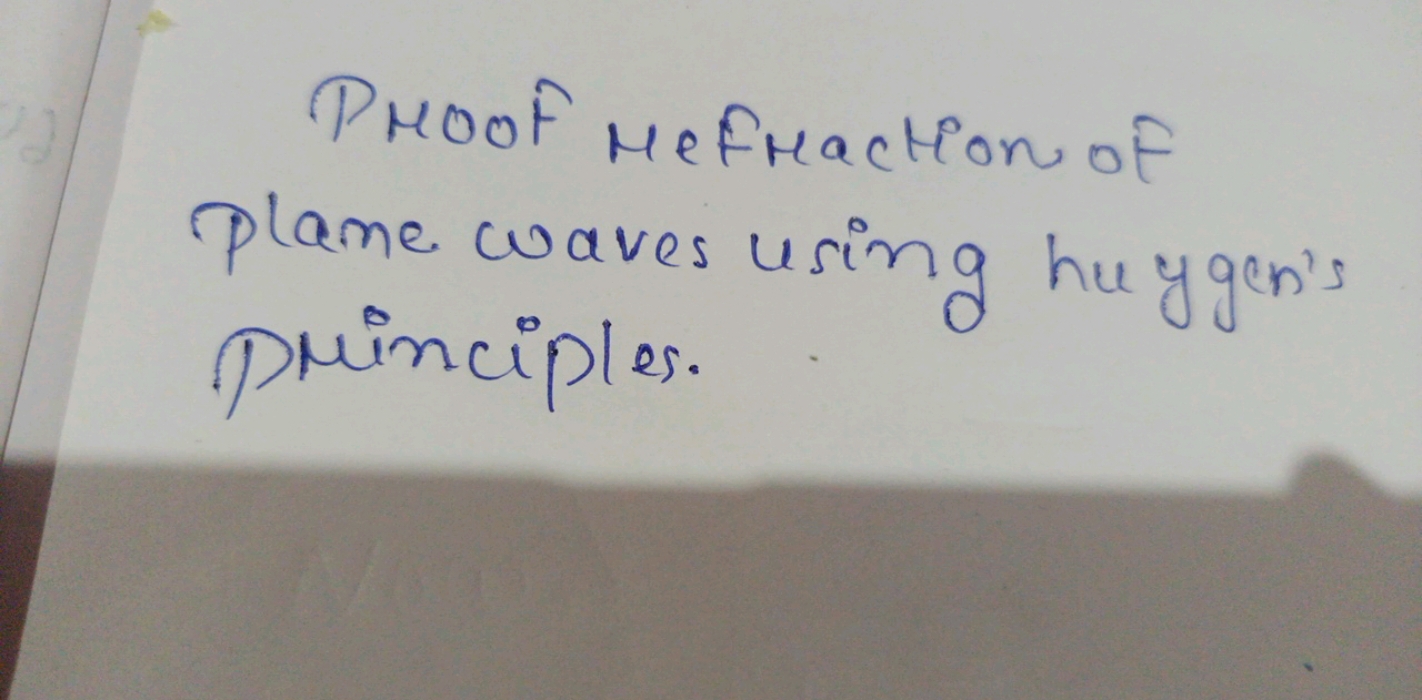 Proof refraction of
plane waves using huygen's
principles.